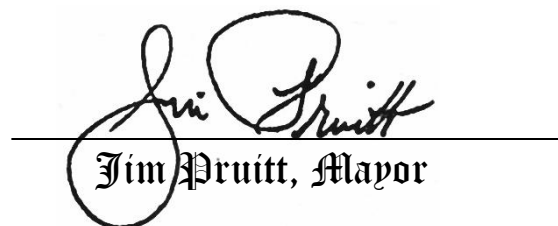 Jim Pruitt
Jim Pruitt, Mayor